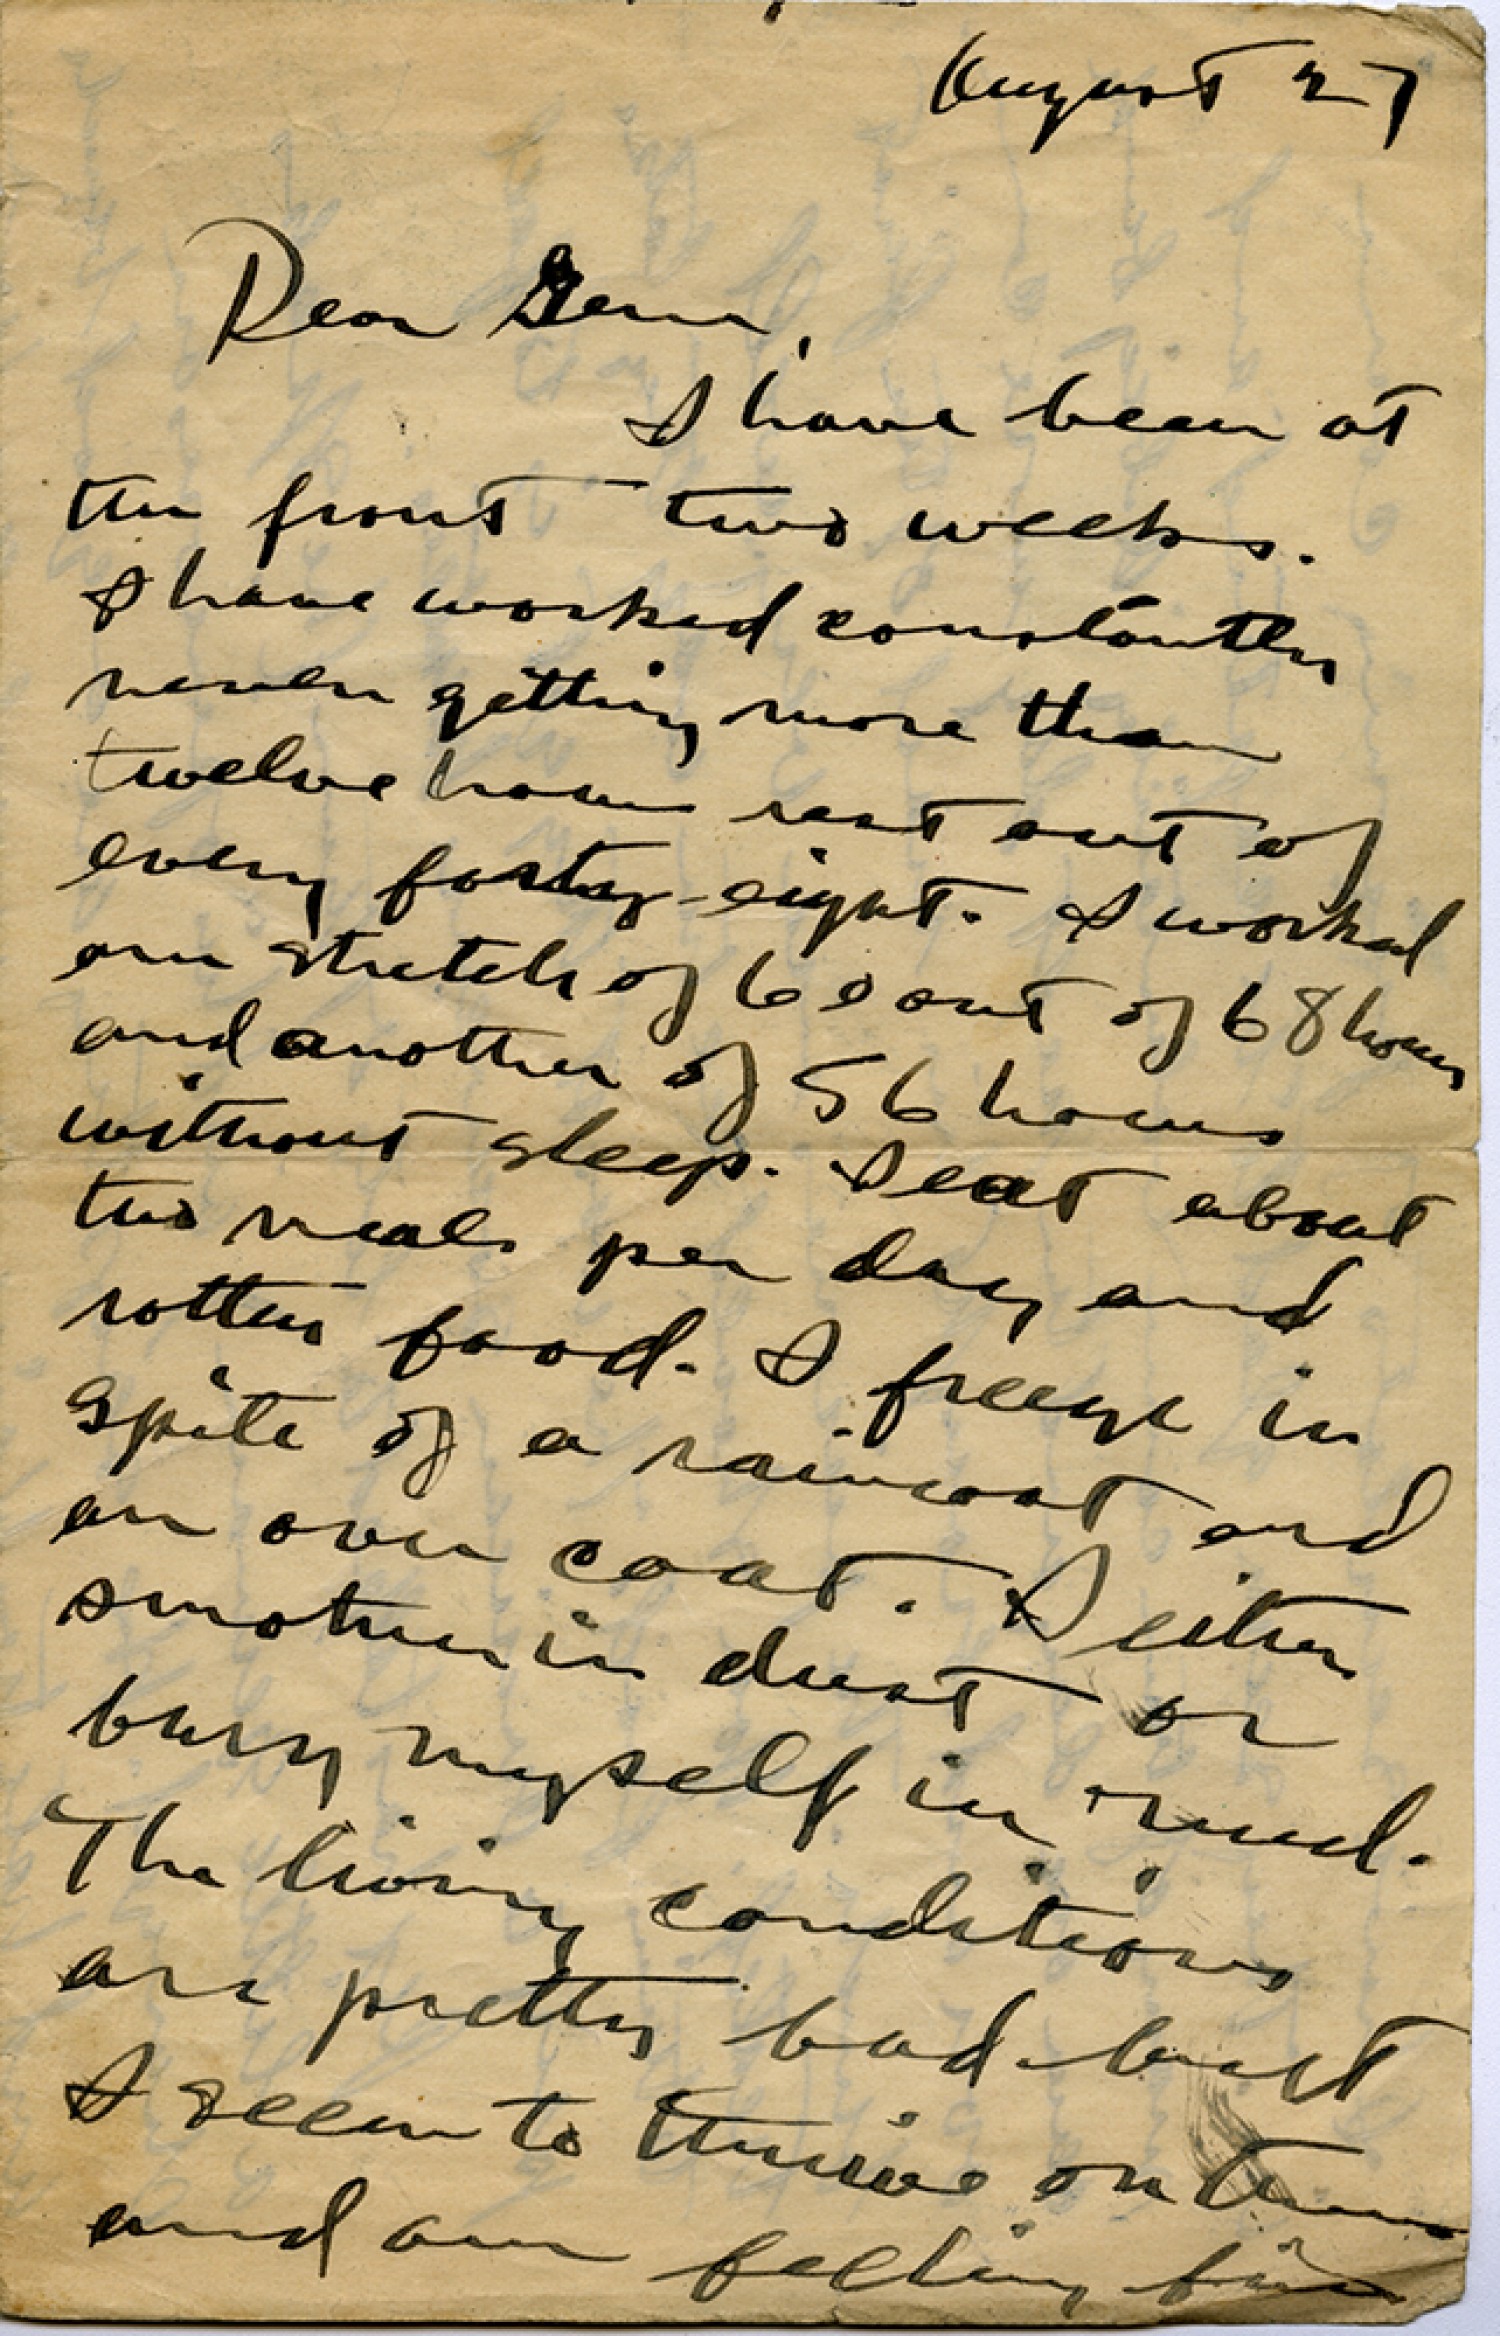 August 27
Dear Gene,
I have been at
the front two weeks.
I have worked constantly
never getting more than
twelve hours rest out of
every forty-eight. I worked
one stretch of 60 out of 68 hours
and another of 56 hours
without sleep. I eat about
two meals per day and
rotten food. I freeze in
spite of a raincoat and
an over coat. I either
smother in dust or
bury myself in mud.
The living conditions
are pretty bad but
I seem to thrive on them
and am feeling fine